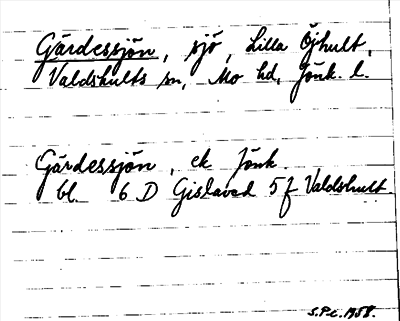 Gärdessjön, sjö, Lilla Öjhult,
Valdshults sn, Mo hd, Jönk. l.
Gärdessjön, ek Jönk.
bl. 6 D Gislaved 5 f Valdshult.
S.P.c. 1958.